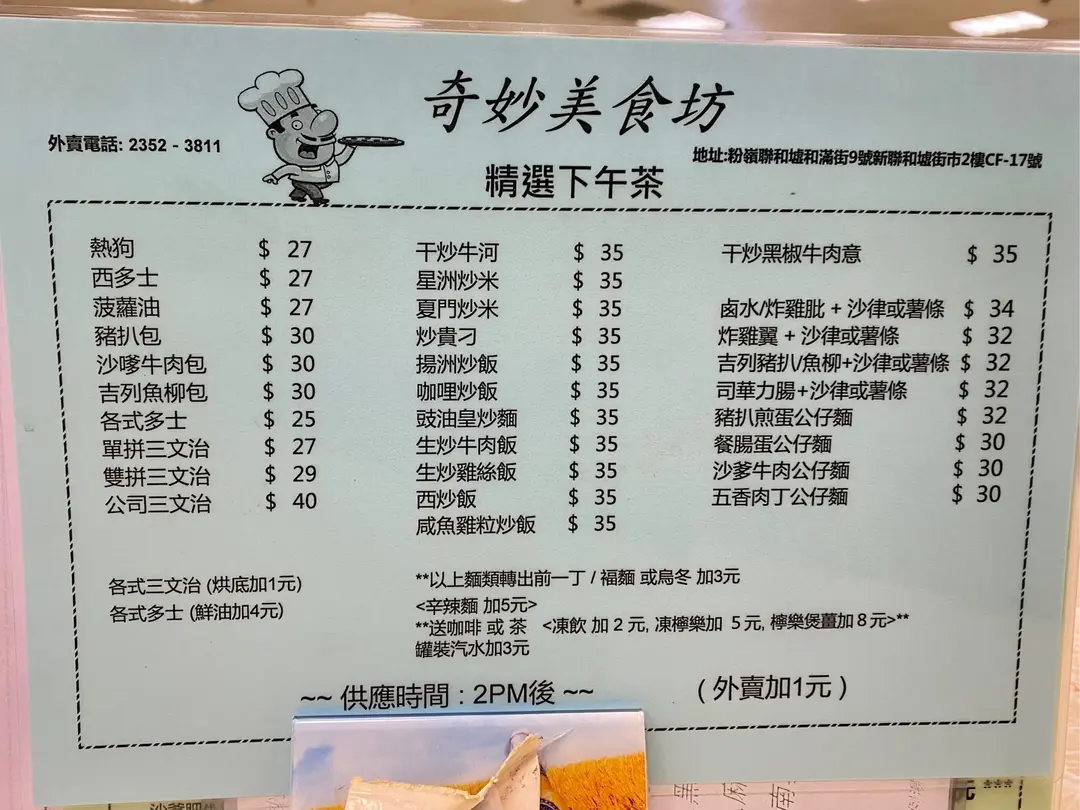 奇妙美食坊
外賣電話: 2352 - 3811
地址:粉嶺聯和墟和滿街9號新聯和墟街市2樓CF-17號
精選下午茶
熱狗 $ 27
西多士 $ 27
菠蘿油 $ 27
豬扒包 $ 30
沙嗲牛肉包 $ 30
吉列魚柳包 $ 30
各式多士 $ 25
單拼三文治 $ 27
雙拼三文治 $ 29
公司三文治 $ 40
干炒牛河 $ 35
星洲炒米 $ 35
夏門炒米 $ 35
炒貴刁 $ 35
揚洲炒飯 $ 35
咖哩炒飯 $ 35
豉油皇炒麵 $ 35
生炒牛肉飯 $ 35
生炒雞絲飯 $ 35
西炒飯 $ 35
咸魚雞粒炒飯 $ 35
干炒黑椒牛肉意 $ 35
鹵水/炸雞肶 + 沙律或薯條 $ 34
炸雞翼 + 沙律或薯條 $ 32
吉列豬扒/魚柳+沙律或薯條 $ 32
司華力腸+沙律或薯條 $ 32
豬扒煎蛋公仔麵 $ 32
餐腸蛋公仔麵 $ 30
沙爹牛肉公仔麵 $ 30
五香肉丁公仔麵 $ 30
各式三文治 (烘底加1元)
各式多士 (鮮油加4元)
**以上麵類轉出前一丁 / 福麵 或烏冬 加3元
<辛辣麵 加5元>
**送咖啡 或 茶 <凍飲 加 2 元, 凍檸樂加 5 元, 檸樂煲薑加 8 元>**
罐裝汽水加3元
~~ 供應時間 : 2PM後 ~~
( 外賣加1元 )